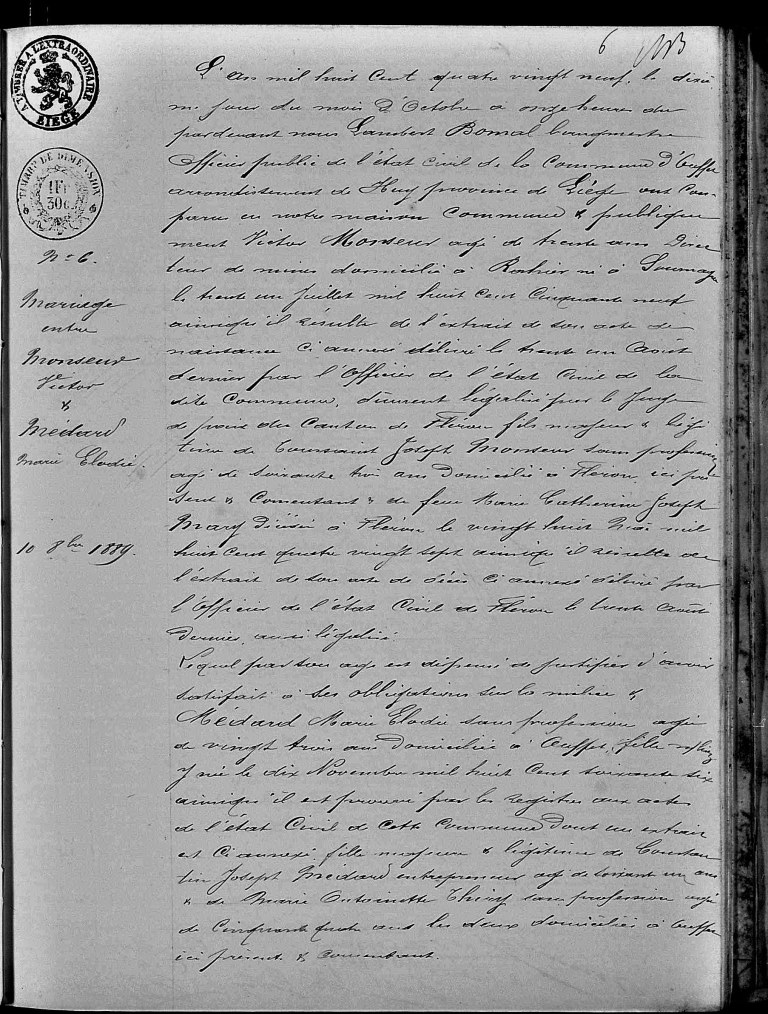 6
A TIMBRER A L'EXTRAORDINAIRE
LIEGE
TIMBRE DE DIMENSION
1 Fr
30 c.
N° 6.
Mariage
entre
Monseur
Victor
&
Médard
Marie Elodie.
10 8bre 1889.
L'an mil huit cent quatre vingt neuf, le dixiè
me jour du mois d'Octobre a onze heures du
pardevant nous Lambert Bomal bourgmestre
Officier public de l'état civil de la Commune d'Ouffet
arrondissement de Huy province de Liége ont com-
paru en notre maison Commune & publique
ment Victor Monseur agé de trente ans Direc
teur de mines domicilié à Rahier né à Soumagne
le trente un Juillet mil huit cent cinquante neuf
ainsiqu'il résulte de l'extrait de son acte de
naissance ci annexé délivré le trente un Août
dernier par l'Officier de l'état Civil de la
dite Commune, dûment légalisé par le Juge
de paix du Canton de Fléron fils majeur & légi
time de Toussaint Joseph Monseur sans profession
agé de soixante trois ans Domicilié à Fléron, ici pré
sent & Consentant & de feue Marie Catherine Joseph
Mary décédée à Fléron le vingt huit mil
huit cent quatre vingt sept ainsiqu'il résulte de
l'extrait de son acte de décès ci annexé délivré par
l'Officier de l'état Civil de Fléron le trente Août
dernier, aussi légalisé
Lequel par son age est dispensé de justifier d'avoir
satisfait à ses obligations sur la milice &
Médard Marie Elodie sans profession agée
de vingt trois ans Domiciliée à Ouffet, fille
y née le dix Novembre mil huit cent soixante six
ainsiqu'il est prouvé par les registres aux actes
de l'état Civil de cette Commune Dont un extrait
est ci annexé, fille majeure & légitime de Constan
tin Joseph Médard entrepreneur agé de soixante un ans
& de Marie Antoinette Thiry sans profession agée
de cinquante quatre ans les deux domiciliés à Ouffet
ici présent & consentant.